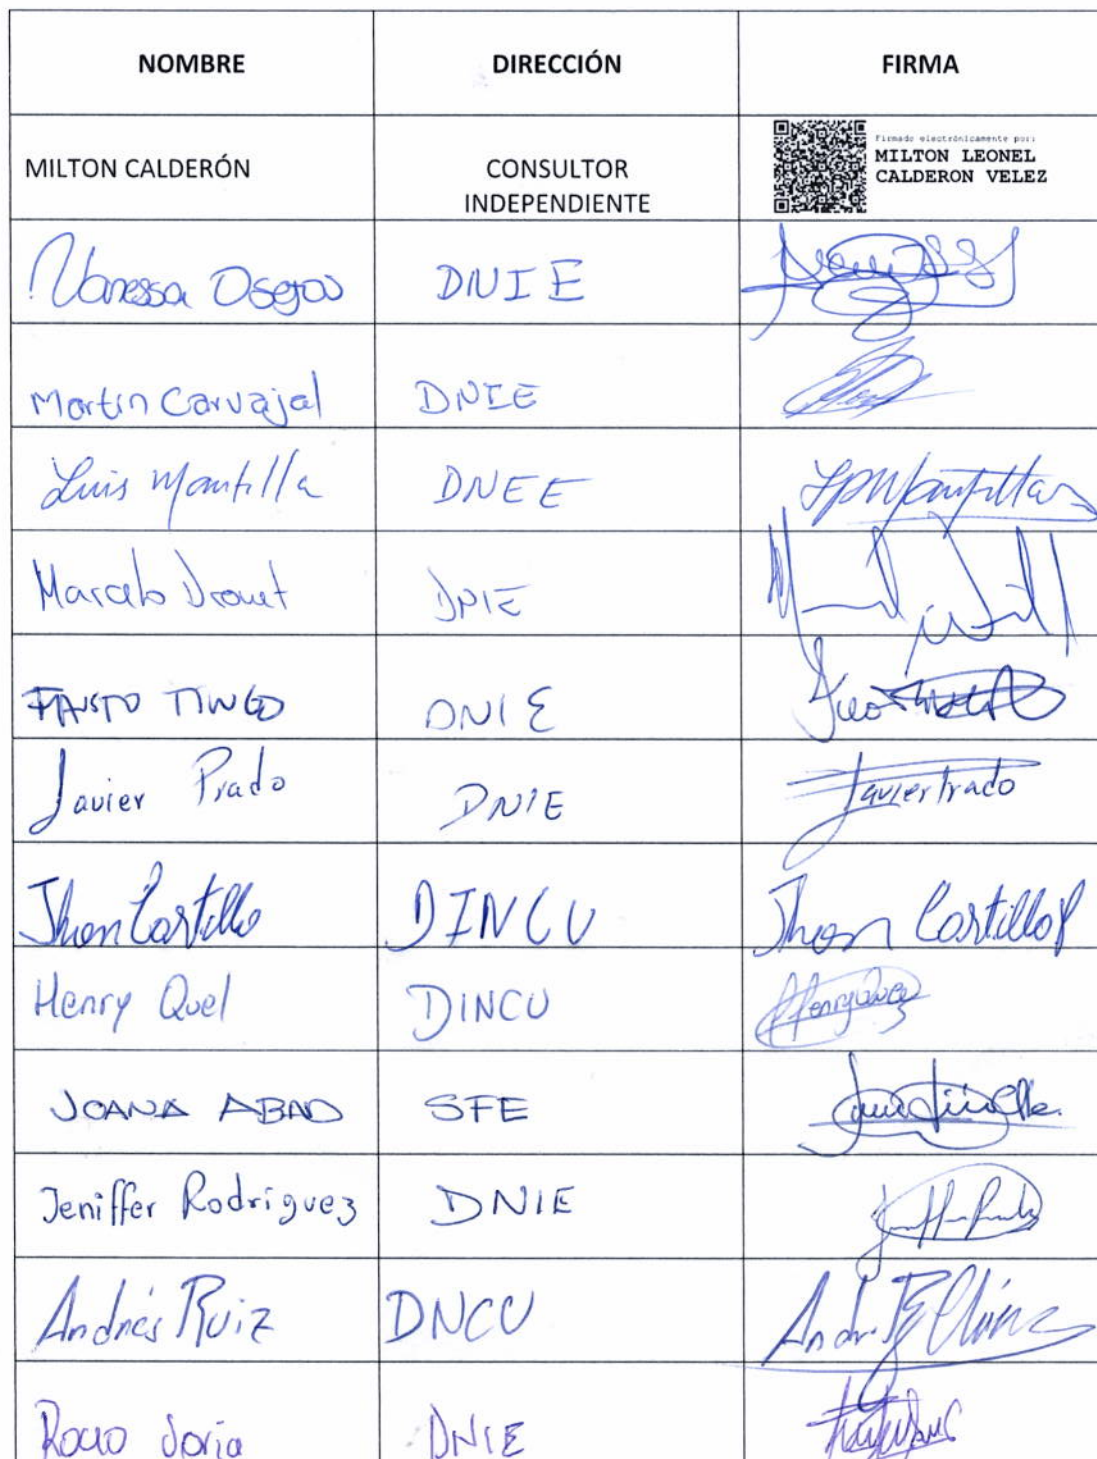 NOMBRE DIRECCIÓN FIRMA
MILTON CALDERÓN CONSULTOR INDEPENDIENTE Firmado electrónicamente por: MILTON LEONEL CALDERON VELEZ
Vanessa Osejos DNIE
Martín Carvajal DNIE
Luis Mantilla DNEE LPMantilla
Marcelo Drouet DNIE
FAUSTO TINGO DNIE
Javier Prado DNIE Javier Prado
Jhon Castillo DINCU Jhon Castillo P
Henry Quel DINCU Henry Quel
JOANA ABAD SFE
Jeniffer Rodríguez DNIE
Andrés Ruiz DNCU
Rocio Soria DNIE